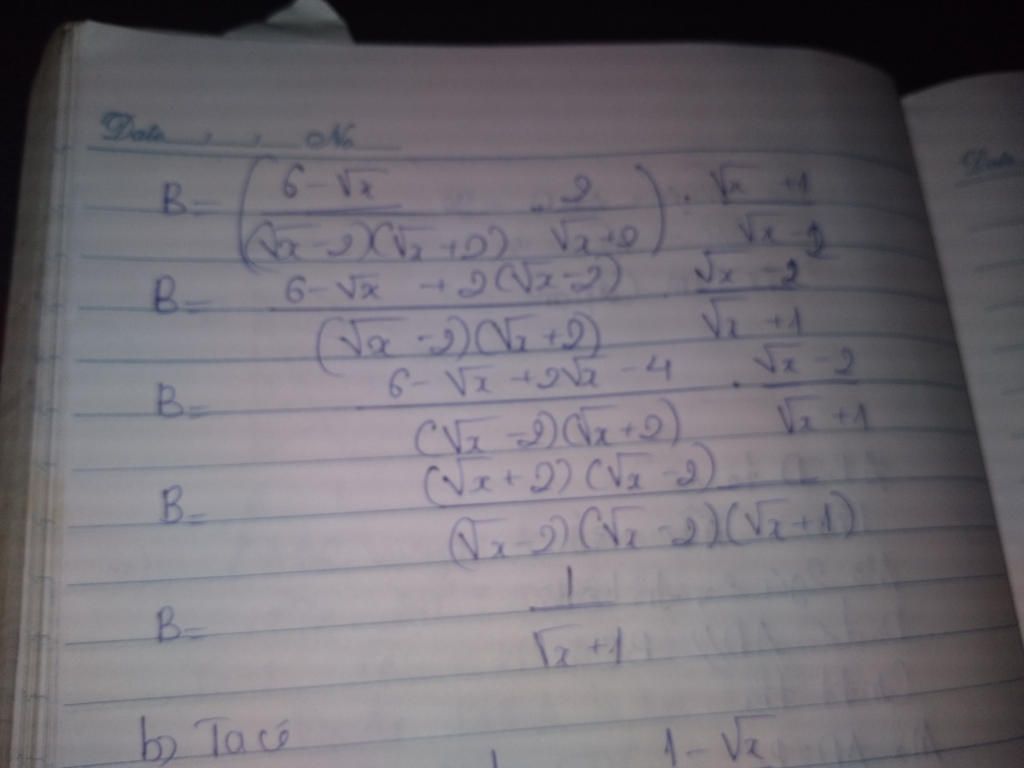 Date , , No
B = ( (6 - √x)/((√x - 2)(√x + 2)) + 2/(√x + 2) ) : (√x + 1)/(√x - 2)
B = (6 - √x + 2(√x - 2))/((√x - 2)(√x + 2)) . (√x - 2)/(√x + 1)
B = (6 - √x + 2√x - 4)/((√x - 2)(√x + 2)) . (√x - 2)/(√x + 1)
B = ((√x + 2)(√x - 2))/((√x - 2)(√x - 2)(√x + 1))
B = 1/(√x + 1)
b) Ta có
1 - √x
Date